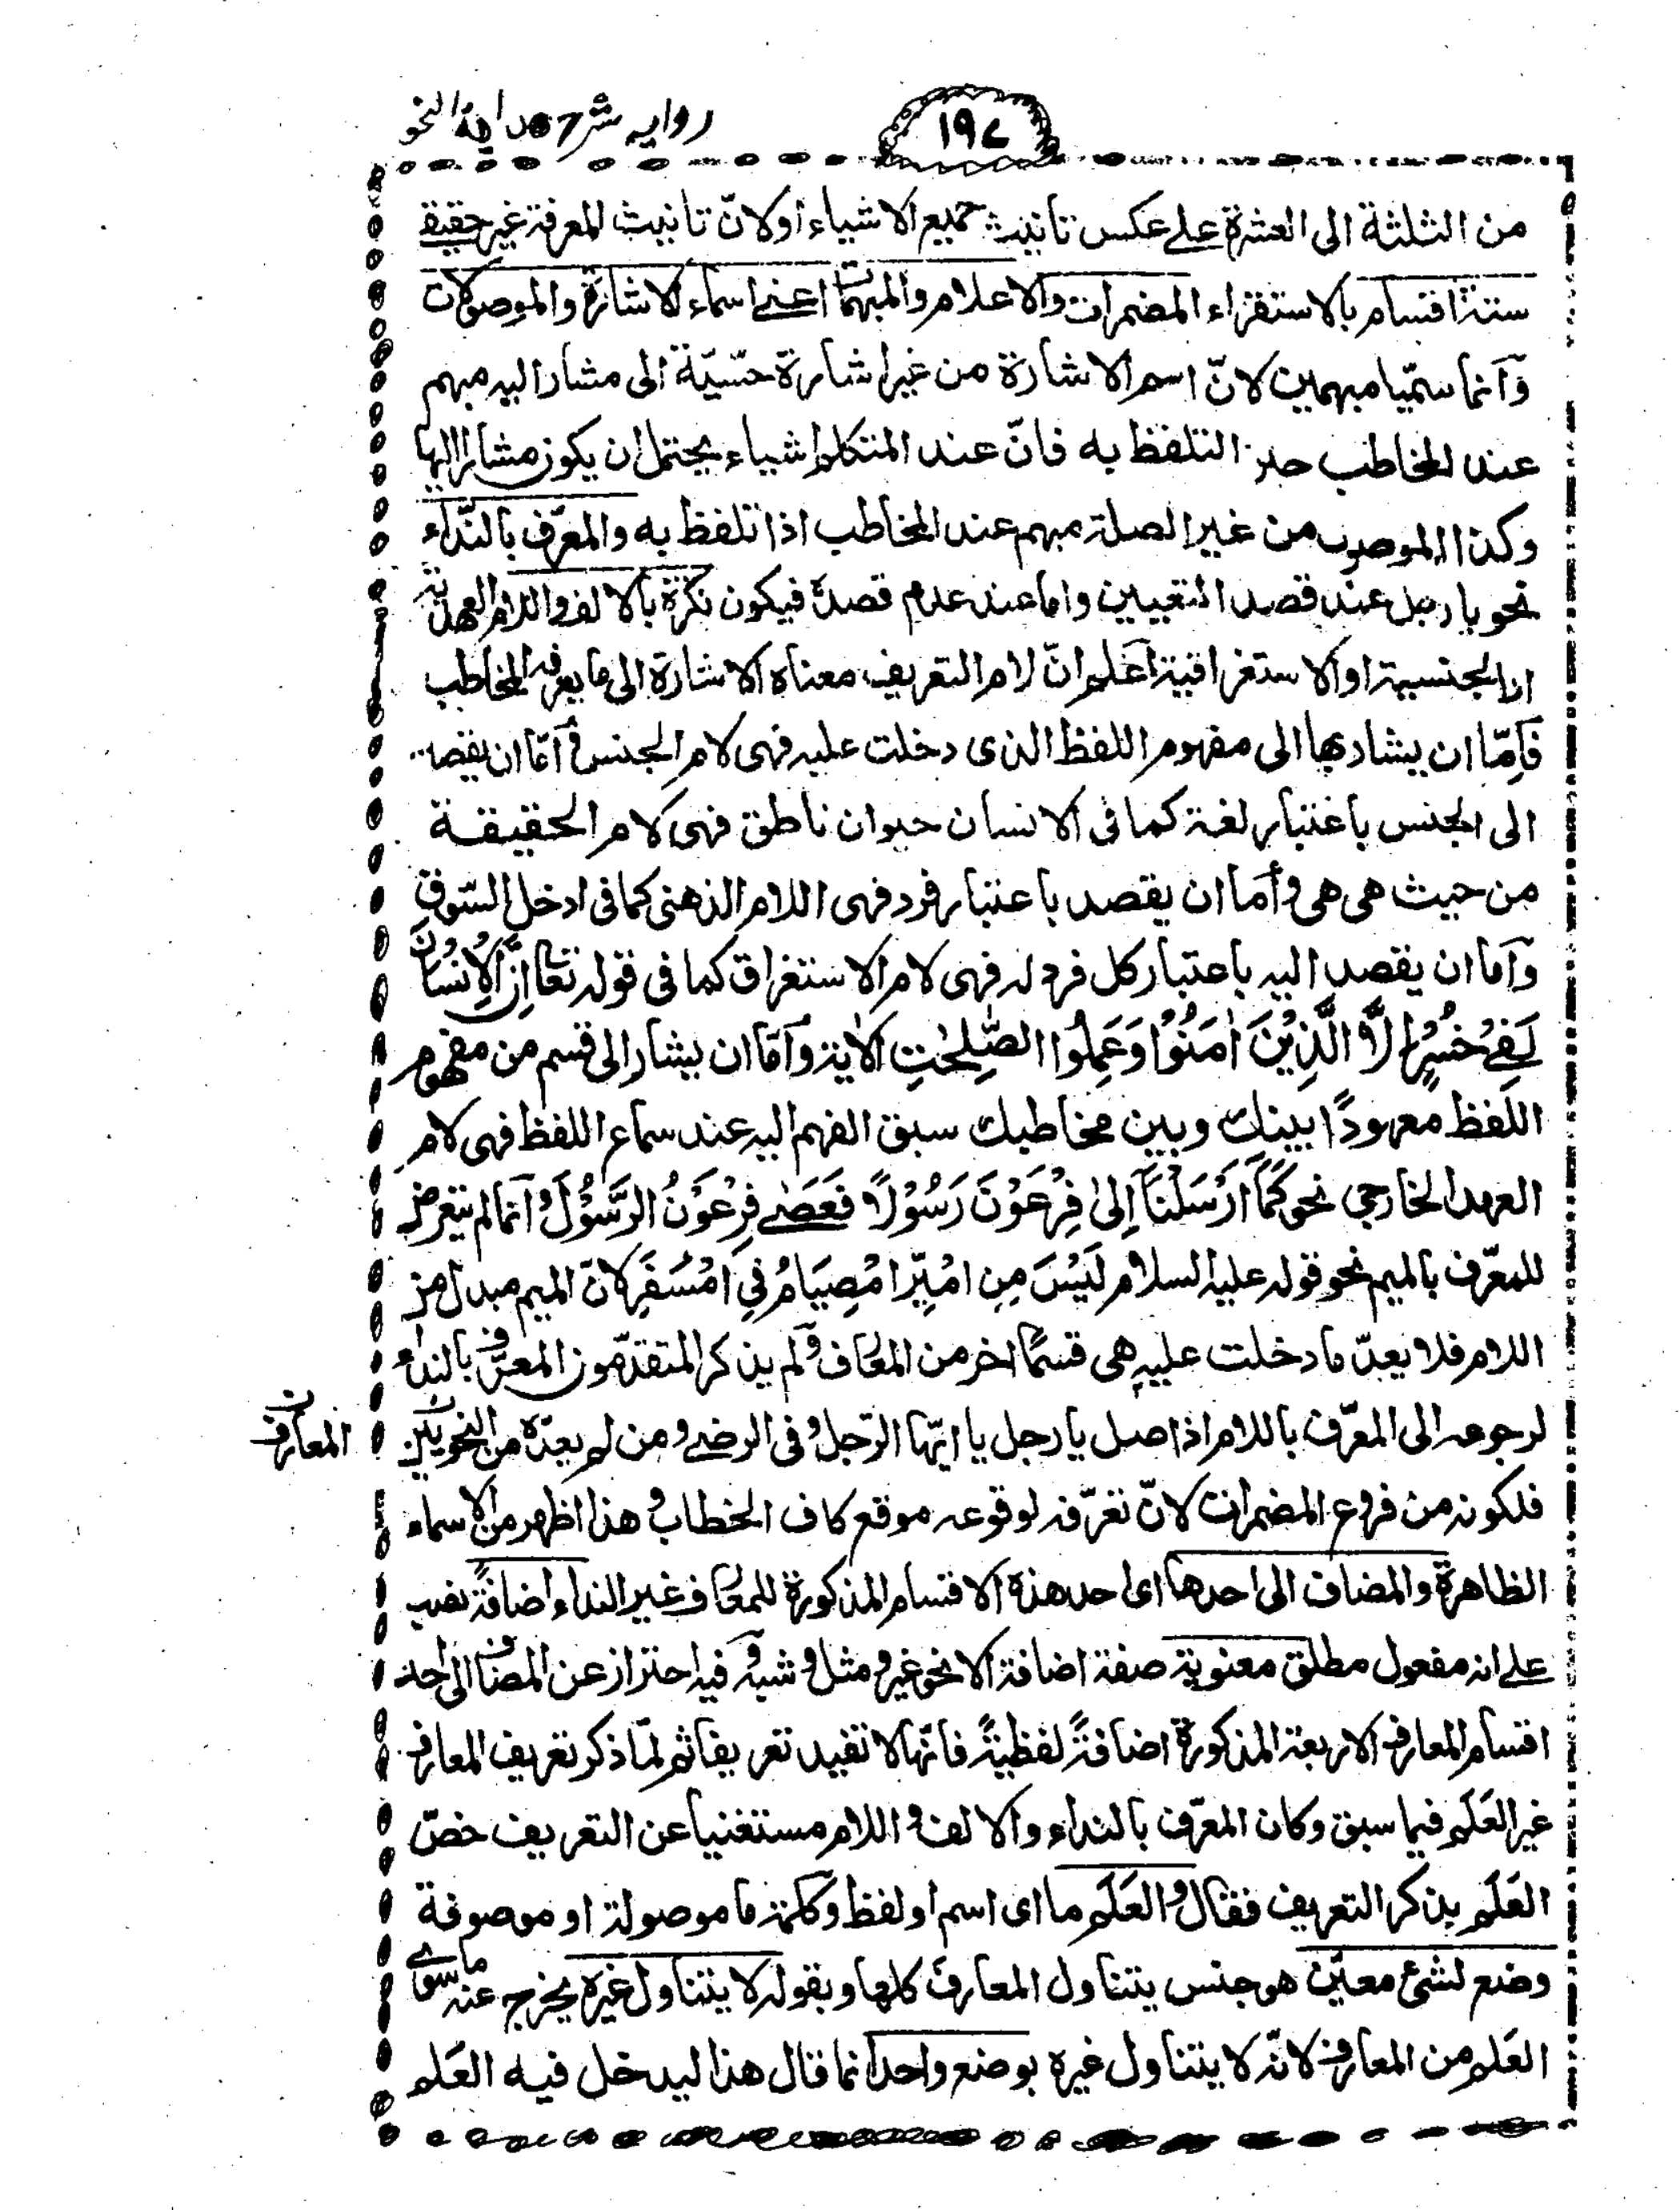 روایہ شرح ھدایۃ النحو
۱۹۷
من الثلثة الى العشرة علے عكس تانيث جميع الاشياء او لانّ تانيث المعرفة غير حقيقے
ستة اقسام بالاستقراء المضمرات والاعلام والمبهمات اعنے اسماء الاشارة والموصولات
وانما سمّيا مبهمين لانّ اسم الاشارة من غير اشارة حسّيّة الى مشار اليه مبهم
عند المخاطب حين التلفظ به فانّ عند المتكلم اشياء يحتمل ان يكون مشارا اليها
وكذا الموصول من غير الصلة مبهم عند المخاطب اذا تلفظ به والمعرّف بالنّداء
نحو يا رجل عند قصد التعيين واما عند عدم قصده فيكون نكرة بالالف واللام العهدية
او الجنسية او الاستغراقية اعلم انّ لام التعريف معناه الاشارة الى ما يعرفه المخاطب
فامّا ان يشار بها الى مفهوم اللفظ الذى دخلت عليه فهى لام الجنس فامّا ان يقصد
الى الجنس باعتبار لغة كما فى الانسان حيوان ناطق فهى لام الحقيقة
من حيث هى هى وأما ان يقصد باعتبار فرد فهى اللام الذهنى كما فى ادخل السّوق
وآما ان يقصد اليه باعتبار كل فرد له فهى لام الاستغراق كما فى قوله تعا اِنَّ الْاِنْسَانَ
لَفِےْ خُسْرٍ اِلَّا الَّذِيْنَ اٰمَنُوْا وَعَمِلُوا الصّٰلِحٰتِ الاية وآمّا ان يشار الى قسم من مفهوم
اللفظ معهودًا بينك وبين مخاطبك سبق الفهم اليه عند سماع اللفظ فهى لام
العهد الخارجى نحو كَمَآ اَرْسَلْنَآ اِلىٰ فِرْعَوْنَ رَسُوْلًا فَعَصٰے فِرْعَوْنُ الرَّسُوْلَ وانما لم يتعرض
للمعرّف بالميم نحو قوله عليه السلام لَيْسَ مِنِ امْبِرِّ امْصِيَامُ فِي امْسَفَرِ لانّ الميم مبدل من
اللام فلا يعدّ ما دخلت عليه هى قسمًا اخر من المعارف ولم يذكر المتقدّمون المعرّف بالنداء
لرجوعه الى المعرّف باللام اذ اصل يا رجل يا ايّها الرّجل وفى الرضے ومن لم يعدّه من النحويّين
المعارف
فلكونه من فروع المضمرات لانّ تعرّفه لوقوعه موقع كاف الخطاب وهذا اظهر من الاسماء
الظاهرة والمضاف الى احدها اى احد هذه الاقسام المذكورة للمعارف غير النداء اضافةً نصب
علے انه مفعول مطلق معنوية صفة اضافة الا نحو غير و مثل و شبه و فيه احتراز عن المضاف الى احد
اقسام المعارف الاربعة المذكورة اضافةً لفظيةً فانّها لا تفيد تعريفا ثم لمّا ذكر تعريف المعارف
غير العَلَم فيما سبق وكان المعرّف بالنداء والالف و اللام مستغنيا عن التعريف خصّ
العَلَم بذكر التعريف فقال والعَلَم ما اى اسم او لفظ وكلمة ما موصولة او موصوفة
وضع لشئ معيّن هو جنس يتناول المعارف كلها وبقوله لا يتناول غيره يخرج عنه ما سوے
العَلم من المعارف لانّه لا يتناول غيره بوضع واحد انما قال هذا ليدخل فيه العَلم